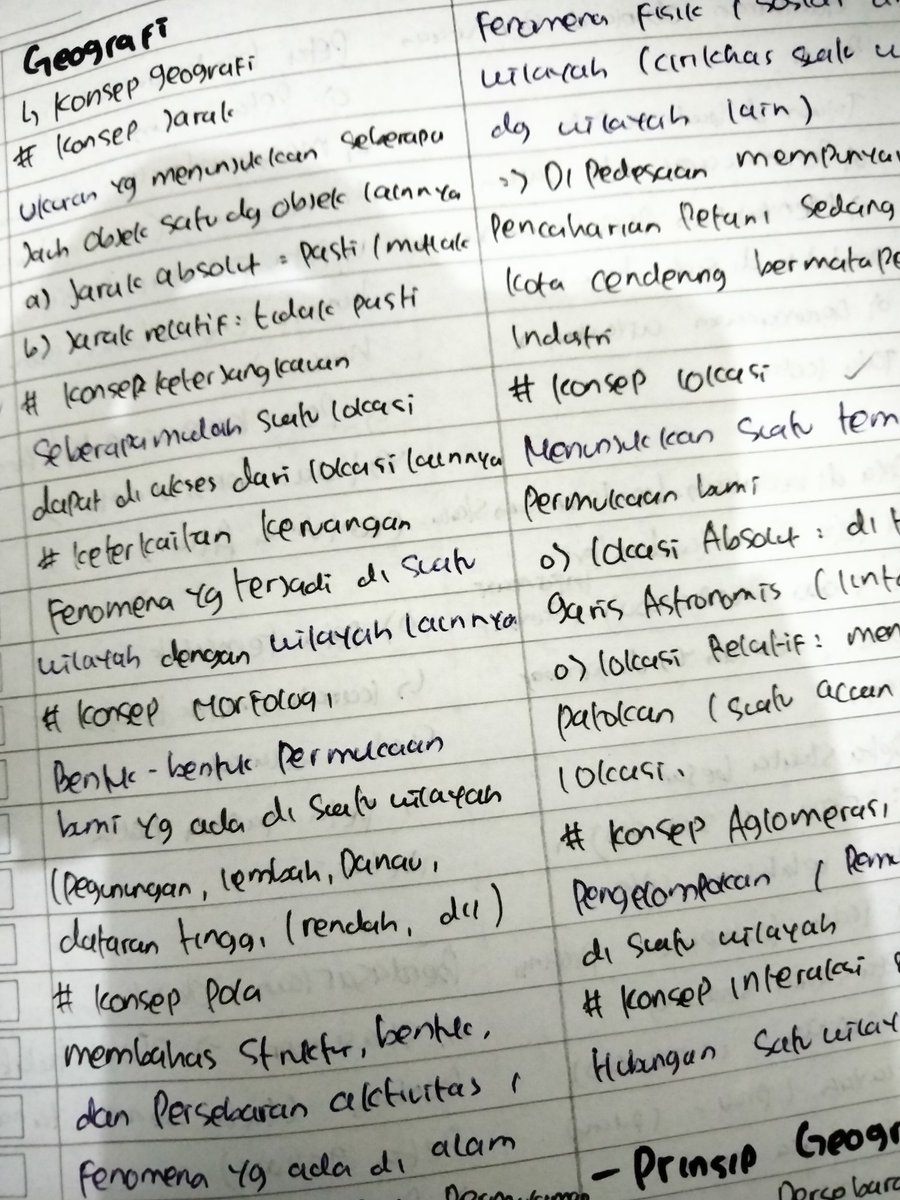 Geografi
↳ Konsep geografi
# Konsep Jarak
Ukuran yg menunjukkan seberapa
Jauh Objek satu dg objek lainnya
a) Jarak absolut = pasti / mutlak
b) Jarak relatif : tidak pasti
# Konsep keterjangkauan
Seberapa mudah suatu lokasi
dapat di akses dari lokasi lainnya
# keterkaitan keruangan
Fenomena yg terjadi di suatu
wilayah dengan wilayah lainnya
# Konsep Morfologi
Bentuk-bentuk Permukaan
bumi yg ada di suatu wilayah
(Pegunungan, lembah, Danau,
dataran tinggi, (rendah, dll)
# Konsep Pola
membahas struktur, bentuk,
dan Persebaran aktivitas /
Fenomena yg ada di alam
Fenomena Fisik / sosial
wilayah (cirikhas suatu
dg wilayah lain)
=> Di Pedesaan mempunyai
Pencaharian Petani sedang
Kota cenderung
Industri
# Konsep lokasi ✓
Menunjukkan suatu
Permukaan bumi
o) lokasi Absolut : di
garis Astronomis
o) lokasi Relatif :
patokan (suatu
lokasi.
# Konsep Aglomerasi
Pengelompokan /
di suatu wilayah
# Konsep interaksi
Hubungan satu
- Prinsip